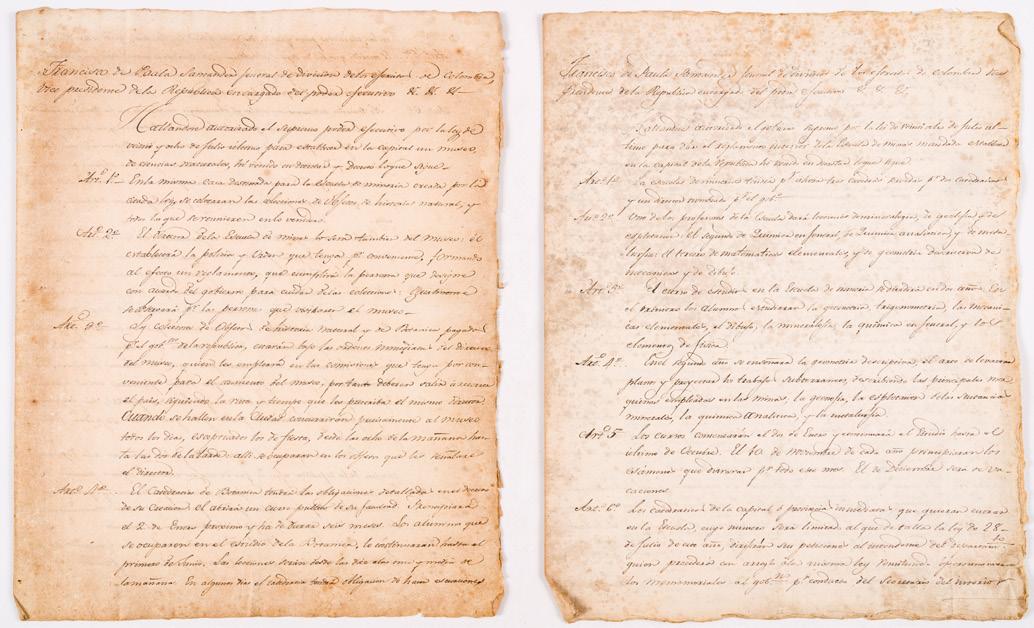 Francisco de Paula Santander General de division de los Exercitos de Colombia,
Vice presidente de la Republica encargado del poder executivo &. &. &.
Hallandose autorizado el Supremo poder Executivo por la ley de
veinte y ocho de Julio ultimo para establecer en la capital un museo
de ciencias naturales, he venido en decretar y decreto lo que sigue.
Arto. 1o. En la misma casa destinada para la Escuela de mineria creada por la
citada ley, se colocaran las colecciones de de historia natural, y
todo lo que se reuniere en lo venidero.
Arto. 2o. El director de la Escuela de minas lo será tambien del museo: él
establecerá la policia y orden que tenga por conveniente, formando
al efecto un reglamento, que cumplirá la persona que designe
con acuerdo del gobierno para cuidar de las colecciones:
se observará por las personas que visitaren el museo.
Arto. 3o. de historia natural y de Botanica pagados
por el gobno. de la republica, estarán bajo las ordenes inmediatas del director
del museo, quien les empleará en las comisiones que tenga por con-
veniente para el aumento del museo, por tanto deberan salir a recorrer
el pais, siguiendo la ruta y tiempo que les prescriba el mismo director.
Cuando se hallen en la Ciudad concurrirán precisamente al museo
todos los dias, exceptuados los de fiesta, desde las ocho de la mañana has-
ta las dos de la tarde: alli se ocuparan en los que les señalare
el director.
Arto. 4o. El Catedratico de Botanica tendrá las obligaciones detalladas en el decreto
de su creacion: él abrirá un curso publico de su facultad. Se empezará
el 2 de Enero proximo y ha de durar seis meses. Los alumnos que
se ocuparen en el estudio de la Botanica, lo continuaran hasta el
primero de Junio. Las lecciones serán desde las diez a las once y media de
la mañana. En algunos dias el catedratico tendrá obligacion de hacer escursiones
Francisco de Paula Santander General de division de los Exercitos de Colombia Vice
Presidente de la Republica encargado del poder executivo &. &. &.
Hallandose autorizado el gobierno supremo por la ley de veinte i ocho de Julio ul-
timo para dar el reglamento de la Escuela de minas mandada establecer
en la capital de la Republica he venido en decretar lo que sigue
Arto. 1o. La escuela de mineria tendrá por ahora tres catedras servidas por tres catedraticos
y un director nombrado por el gobo.
Arto. 2o. Uno de los profesores de la Escuela dará lecciones de mineralogia, de geolojia y de
esplotacion: el segundo de Quimica en jeneral, de Quimica analitica, y de meta-
lurjia: el tercero de matematicas elementales, y de geometria descriptiva de
mecanicas y de dibujo.
Arto. 3o. El curso de estudio en la Escuela de mineria se dividirá en dos años. En
el primero los alumnos estudiaran la geometria, trigonometria, las mecani-
cas elementales, el dibujo, la mineralojia, la quimica en jeneral, y los
elementos de fisica.
Arto. 4o. En el segundo año se enseñará la geometria descriptiva, el arte de levantar
planos y proyectar los trabajos subterraneos, describiendo las principales ma-
quinas empleadas en las minas, la geolojia, la esplotacion de las sustancias
minerales, la quimica analitica, y la metalurjia.
Arto. 5 Los cursos comenzarán el dos de Enero y continuará el estudio hasta el
ultimo de Octubre. El 10 de noviembre de cada año principiaran los
exámenes que duraran por todo este mes. El de Diciembre será de va-
caciones.
Arto. 6o. Los ciudadanos de la capital o provincia inmediata que quieran cursar
en la Escuela, cuyo numero será limitado al que detalla la ley de 28
de Julio de este año, dirijirán sus peticiones al intendente del departamto.
quien procederá con arreglo a la misma ley remitiendo oportunamente
los memoriales al gobno. por conducto del Secretario del interior